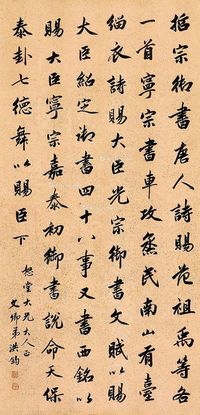 哲宗御書唐人詩賜范祖禹等各
一首寧宗書車攻烝民南山有臺
緇衣詩賜大臣光宗御書文賦以賜
大臣紹定御書四十八事又書西銘以
賜大臣寧宗嘉泰初御書說命天保
泰卦七德舞以賜臣下
懋堂大兄大人正
文卿弟洪鈞